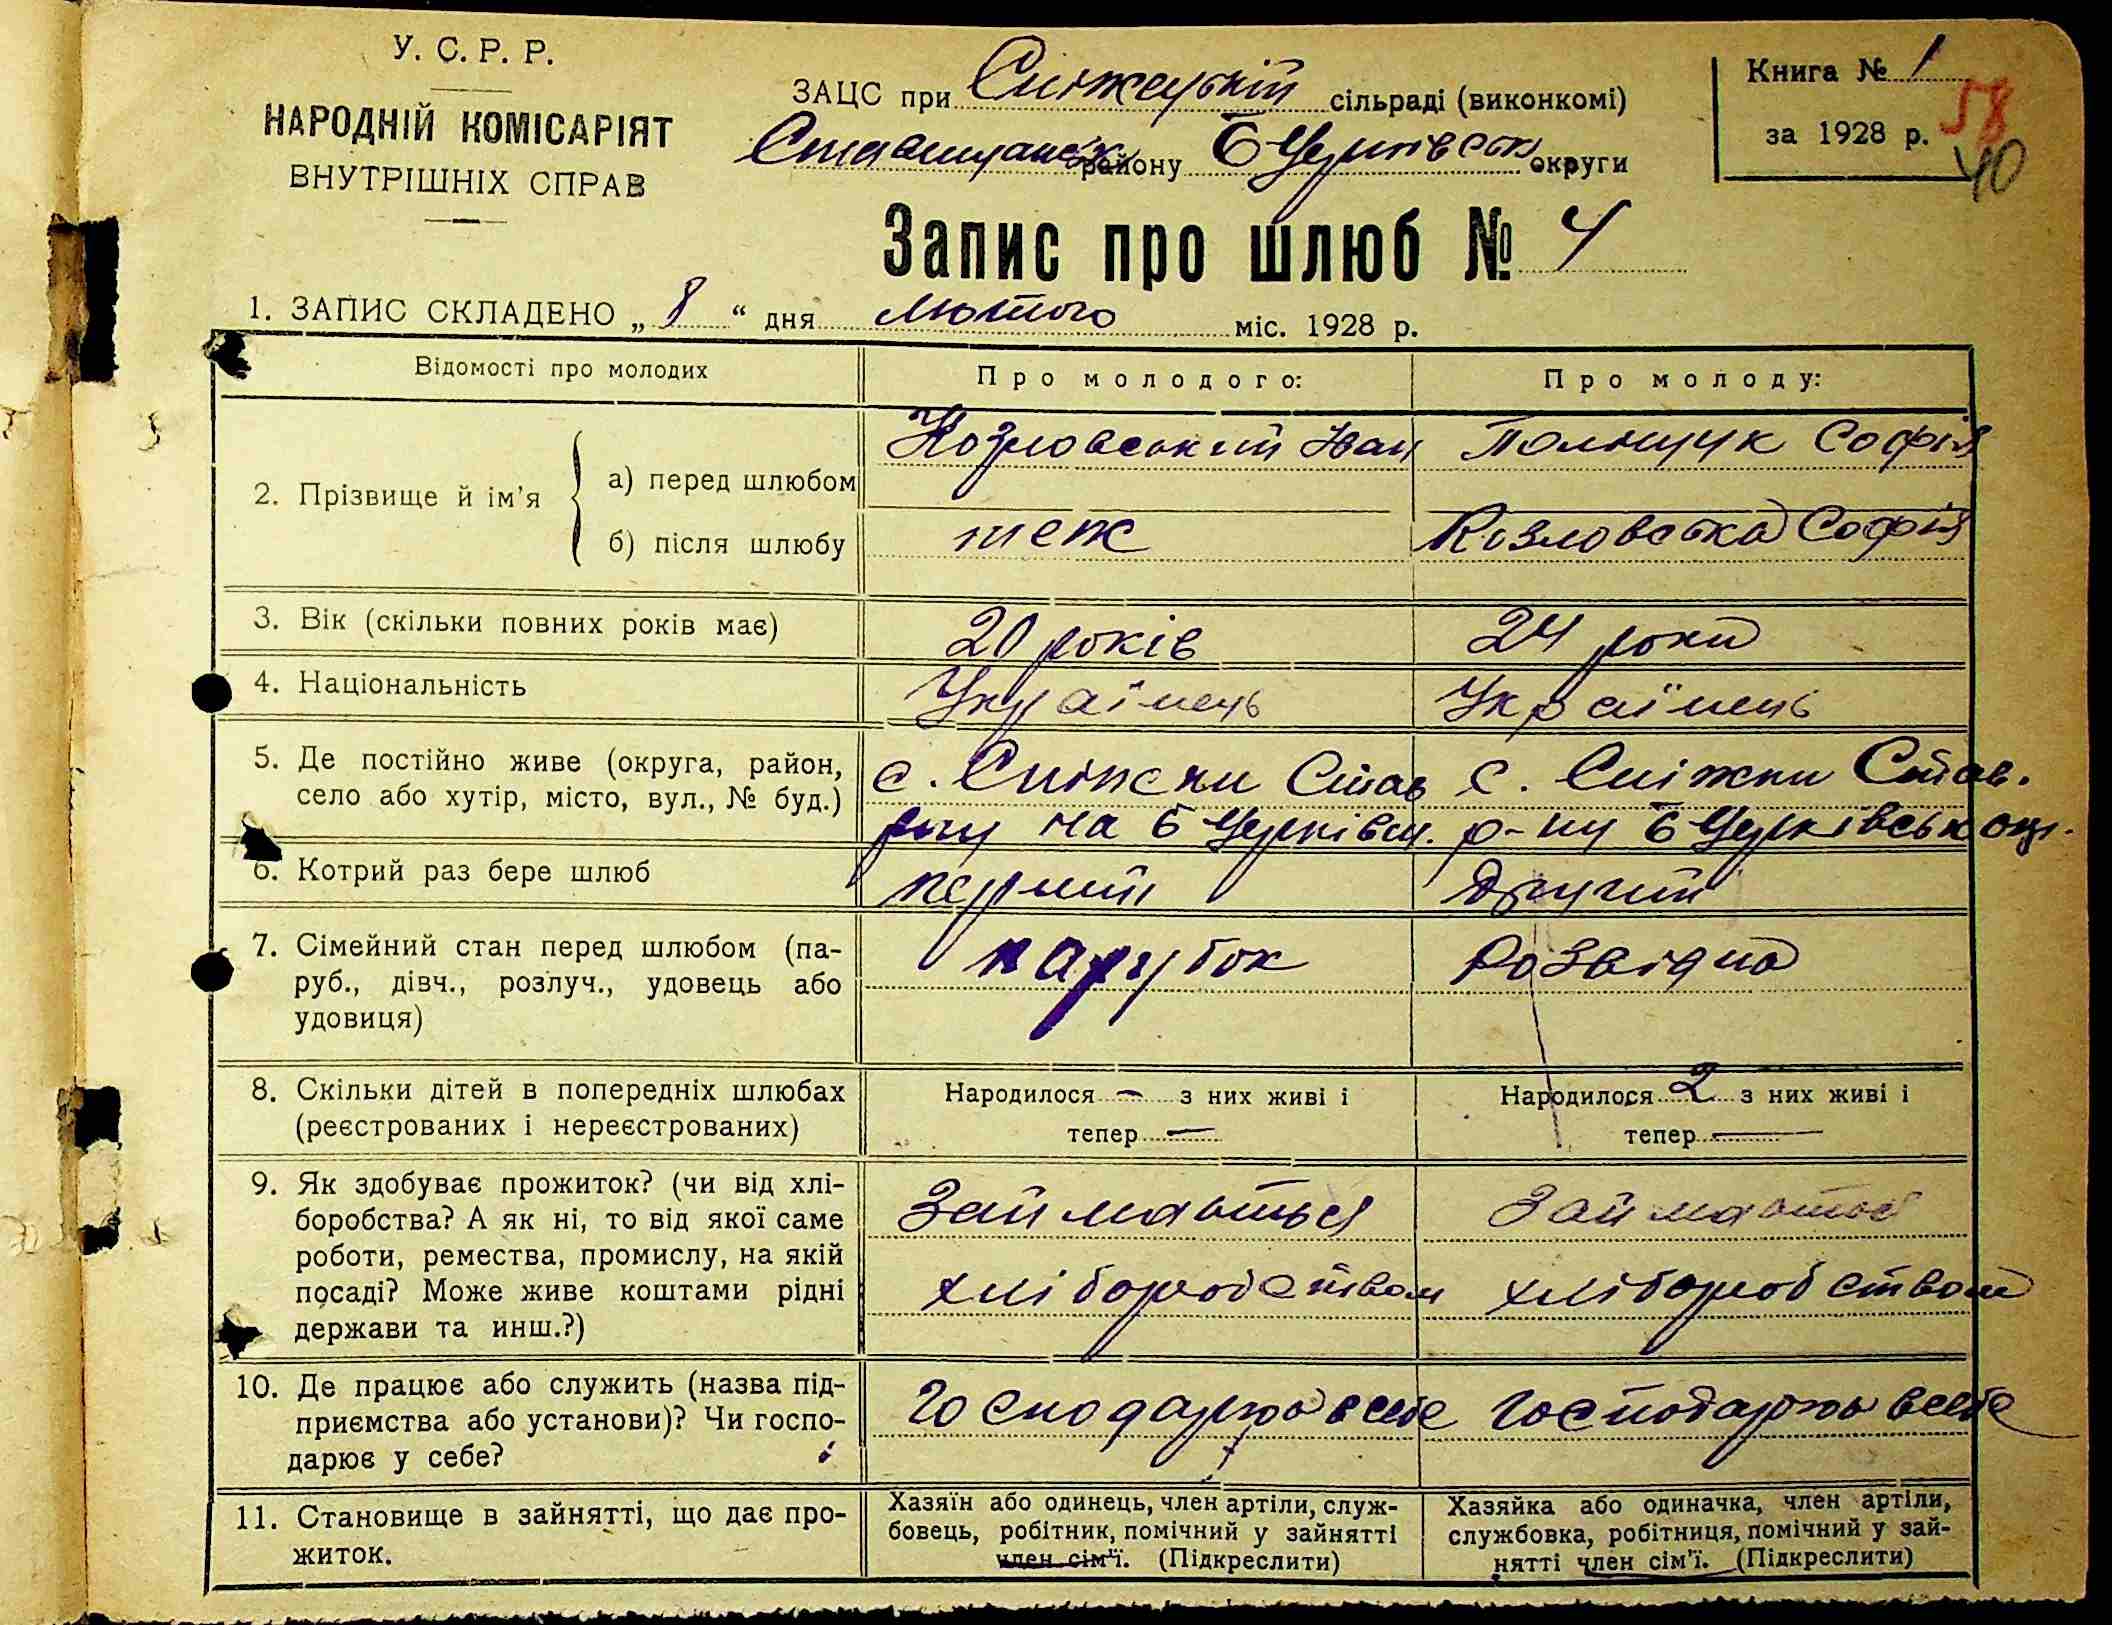 У. С. Р. Р.
НАРОДНІЙ КОМІСАРІЯТ
ВНУТРІШНІХ СПРАВ
ЗАЦС при Сніжецькій сільраді (виконкомі)
Ставищанськ району БЦерківськ округи
Книга № 1
за 1928 р.
58
40
Запис про шлюб № 4
1. ЗАПИС СКЛАДЕНО „ 8 “ дня лютого міс. 1928 р.
Відомості про молодих
Про молодого:
Про молоду:
2. Прізвище й ім’я
а) перед шлюбом
Козловський Іван
Поліщук Софія
б) після шлюбу
теж
Козловська Софія
3. Вік (скільки повних років має)
20 років
24 роки
4. Національність
Українець
Українець
5. Де постійно живе (округа, район,
село або хутір, місто, вул., № буд.)
с. Сніжки Став
р-ну на БЦерківщ.
с. Сніжки Став.
р-ну БЦерківськ окр.
6. Котрий раз бере шлюб
перший
другий
7. Сімейний стан перед шлюбом (па-
руб., дівч., розлуч., удовець або
удовиця)
парубок
Розвідна
8. Скільки дітей в попередніх шлюбах
(реєстрованих і нереєстрованих)
Народилося — з них живі і
тепер —
Народилося 2 з них живі і
тепер —
9. Як здобуває прожиток? (чи від хлі-
боробства? А як ні, то від якої саме
роботи, ремества, промислу, на якій
посаді? Може живе коштами рідні
держави та инш.?)
Займаються
хліборобством
Займаються
хліборобством
10. Де працює або служить (назва під-
приємства або установи)? Чи госпо-
дарює у себе?
Господарює в себе
Господарює в себе
11. Становище в зайнятті, що дає про-
житок.
Хазяїн або одинець, член артіли, служ-
бовець, робітник, помічний у зайнятті
член сім’ї. (Підкреслити)
Хазяйка або одиначка, член артіли,
службовка, робітниця, помічний у зай-
нятті член сім’ї. (Підкреслити)